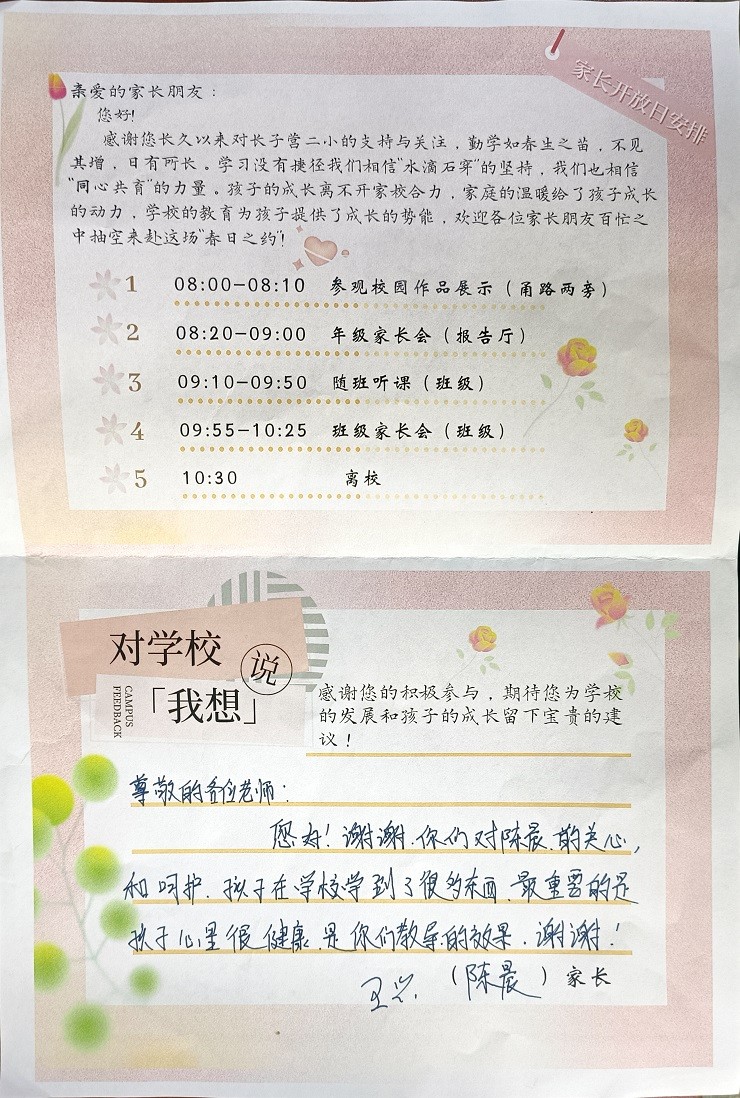 家长开放日安排
亲爱的家长朋友：
您好!
感谢您长久以来对长子营二小的支持与关注，勤学如春生之苗，不见
其增，日有所长。学习没有捷径我们相信“水滴石穿”的坚持，我们也相信
“同心共育”的力量。孩子的成长离不开家校合力，家庭的温暖给了孩子成长
的动力，学校的教育为孩子提供了成长的势能，欢迎各位家长朋友百忙之
中抽空来赴这场“春日之约”!
1 08:00-08:10 参观校园作品展示（甬路两旁）
2 08:20-09:00 年级家长会（报告厅）
3 09:10-09:50 随班听课（班级）
4 09:55-10:25 班级家长会（班级）
5 10:30 离校
对学校
说
「我想」
CAMPUS
FEEDBACK
感谢您的积极参与，期待您为学校
的发展和孩子的成长留下宝贵的建
议！
尊敬的各位老师：
您好！谢谢.你们对陈晨.的关心，
和呵护.孩子在学校学到了很多东西.最重要的是
孩子心里很健康.是你们教导的效果.谢谢！
（陈晨）家长